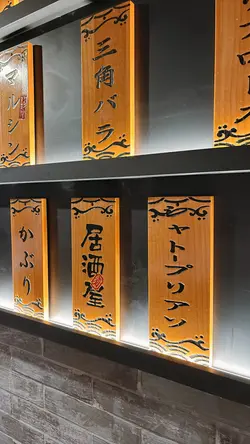 マルシン
三角バラ
かぶり
居酒屋
シャトーブリアン